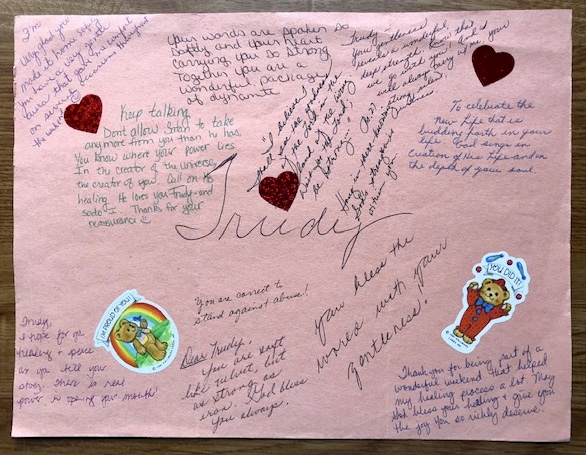 I'm
very glad you
made it from
you have a very
aura that
on serenity
the weekend
Your words are spoken so
softly and your heart
carrying you so strong
Together you are a
wonderful package
of dynamite.
Trudy,
Your gentleness
reveals a wonderful
deep strength. Know that
as we go with you, God is
will always carry me your
"I believe I
shall see the goodness
of the Lord in the
land of the living
Keep talking
Dont allow Satan to take
anymore from you than he has.
You know where your power lies
In the creator of the universe,
the creator of you! Call on His
healing. He loves you Trudy - and
so do I. Thanks for your
reassurance
To celebrate the
new life that is
budding forth in your
life God sings in
Creation of His Life and in
the depth of your soul.
Trudy
You are correct to
stand against abuse!
You bless the
world with your
gentleness.
I'M PROUD OF YOU!
YOU DID IT!
Trudy,
I hope for you
healing + peace
as you tell your
story. There is real
power in opening your mouth
Dear Trudy,
You are soft
like velvet, but
as strong as
iron. God bless
you always.
Thank you for being part of a
wonderful weekend that helped
my healing process a lot. May
God bless your healing & give you
the joy you so richly deserve.